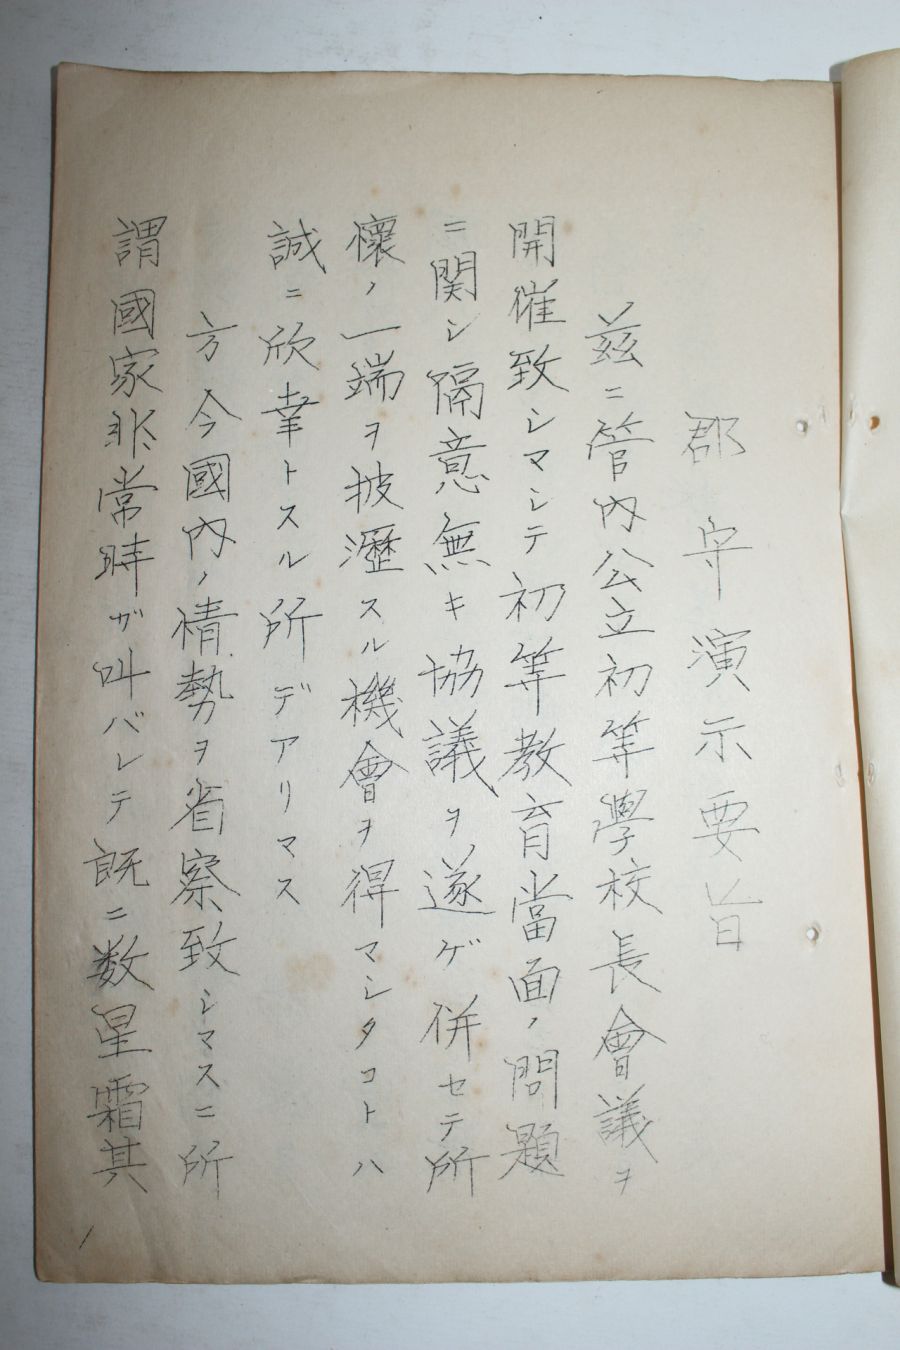 郡守演示要旨
玆ニ管内公立初等學校長會議ヲ
開催致シマシテ初等教育當面ノ問題
ニ関シ隔意無キ協議ヲ遂ゲ併セテ所
懐ノ一端ヲ披瀝スル機會ヲ得マシタコトハ
誠ニ欣幸トスル所デアリマス
方今國内ノ情勢ヲ省察致シマスニ所
謂國家非常時ガ叫バレテ既ニ数星霜其
1